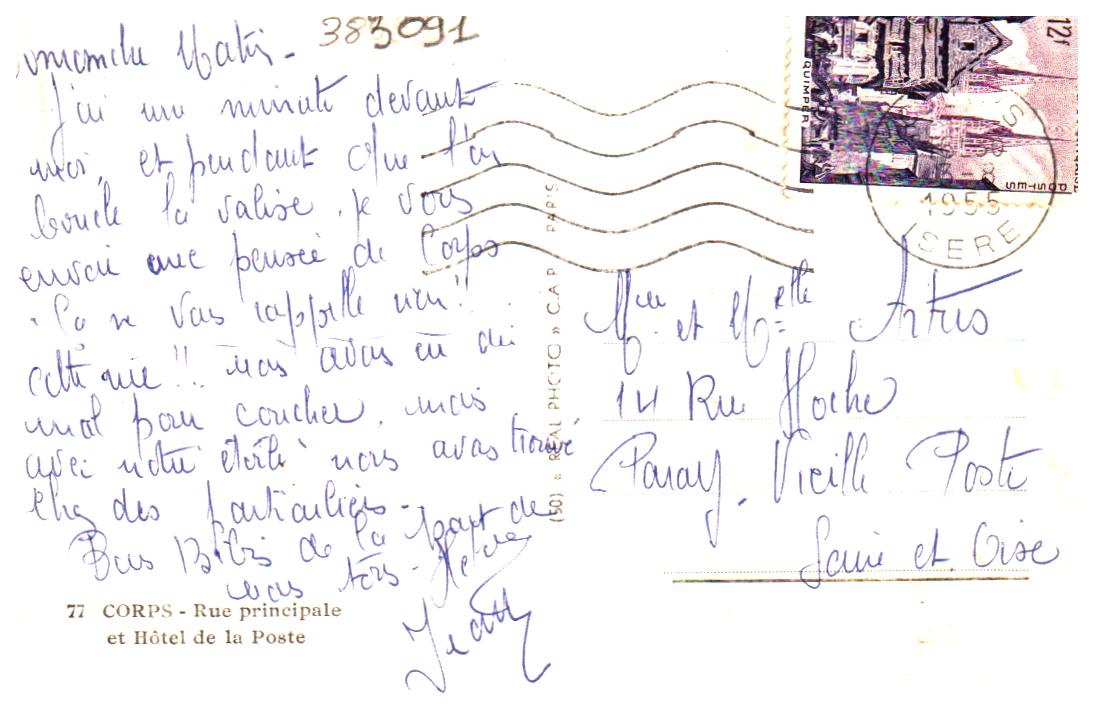 383091
manche Matin -
J'ai une minute devant
moi, et pendant que l'on
boucle la valise, je vous
envoie une pensée de Corps
Ça ne vous rappelle rien!!
cette vie!! nous avons eu du
mal pour coucher, mais
avec notre étoile nous avons trouvé
chez des particuliers -
Bons de la part de
nous tous -
77 CORPS - Rue principale
et Hôtel de la Poste
(60) « REAL PHOTO » C.A.P. PARIS
QUIMPER
12f
POSTES
1955
ISERE
Mme et Melle Artus
14 Rue Hoche
Paray-Vieille Poste
Seine et Oise